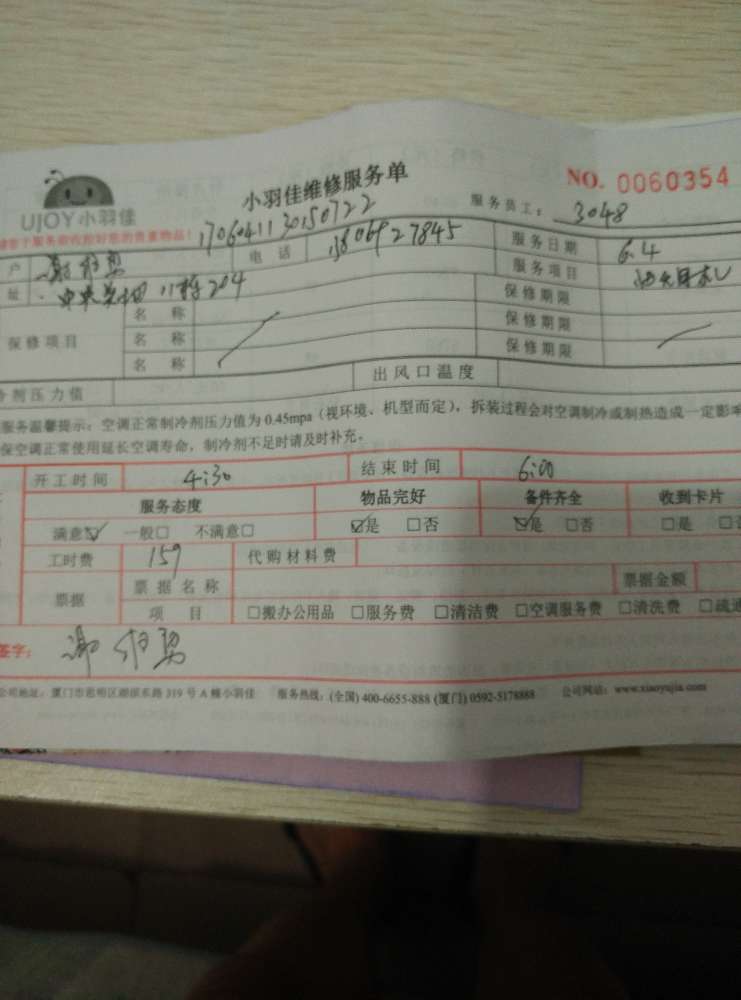 UJOY小羽佳
小羽佳维修服务单
NO. 0060354
服务员工: 3048
1706041130150722
户 电话 服务日期 6.4
址 204 服务项目
保修项目 名称 保修期限
名称 保修期限
名称 保修期限
剂压力值 出风口温度
服务温馨提示：空调正常制冷剂压力值为0.45mpa（视环境、机型而定），拆装过程会对空调制冷或制热造成一定影响
保空调正常使用延长空调寿命，制冷剂不足时请及时补充。
开工时间 4:30 结束时间 6:00
服务态度 物品完好 备件齐全 收到卡片
满意☑ 一般□ 不满意□ ☑是 □否 ☑是 □否 □是
工时费 159 代购材料费
票据 票据名称 票据金额
项目 □搬办公用品 □服务费 □清洁费 □空调服务费 □清洗费 □疏通
签字：
公司地址：厦门市思明区湖滨东路319号A幢小羽佳 服务热线：(全国) 400-6655-888 (厦门) 0592-5178888 公司网站：www.xiaoyujia.com